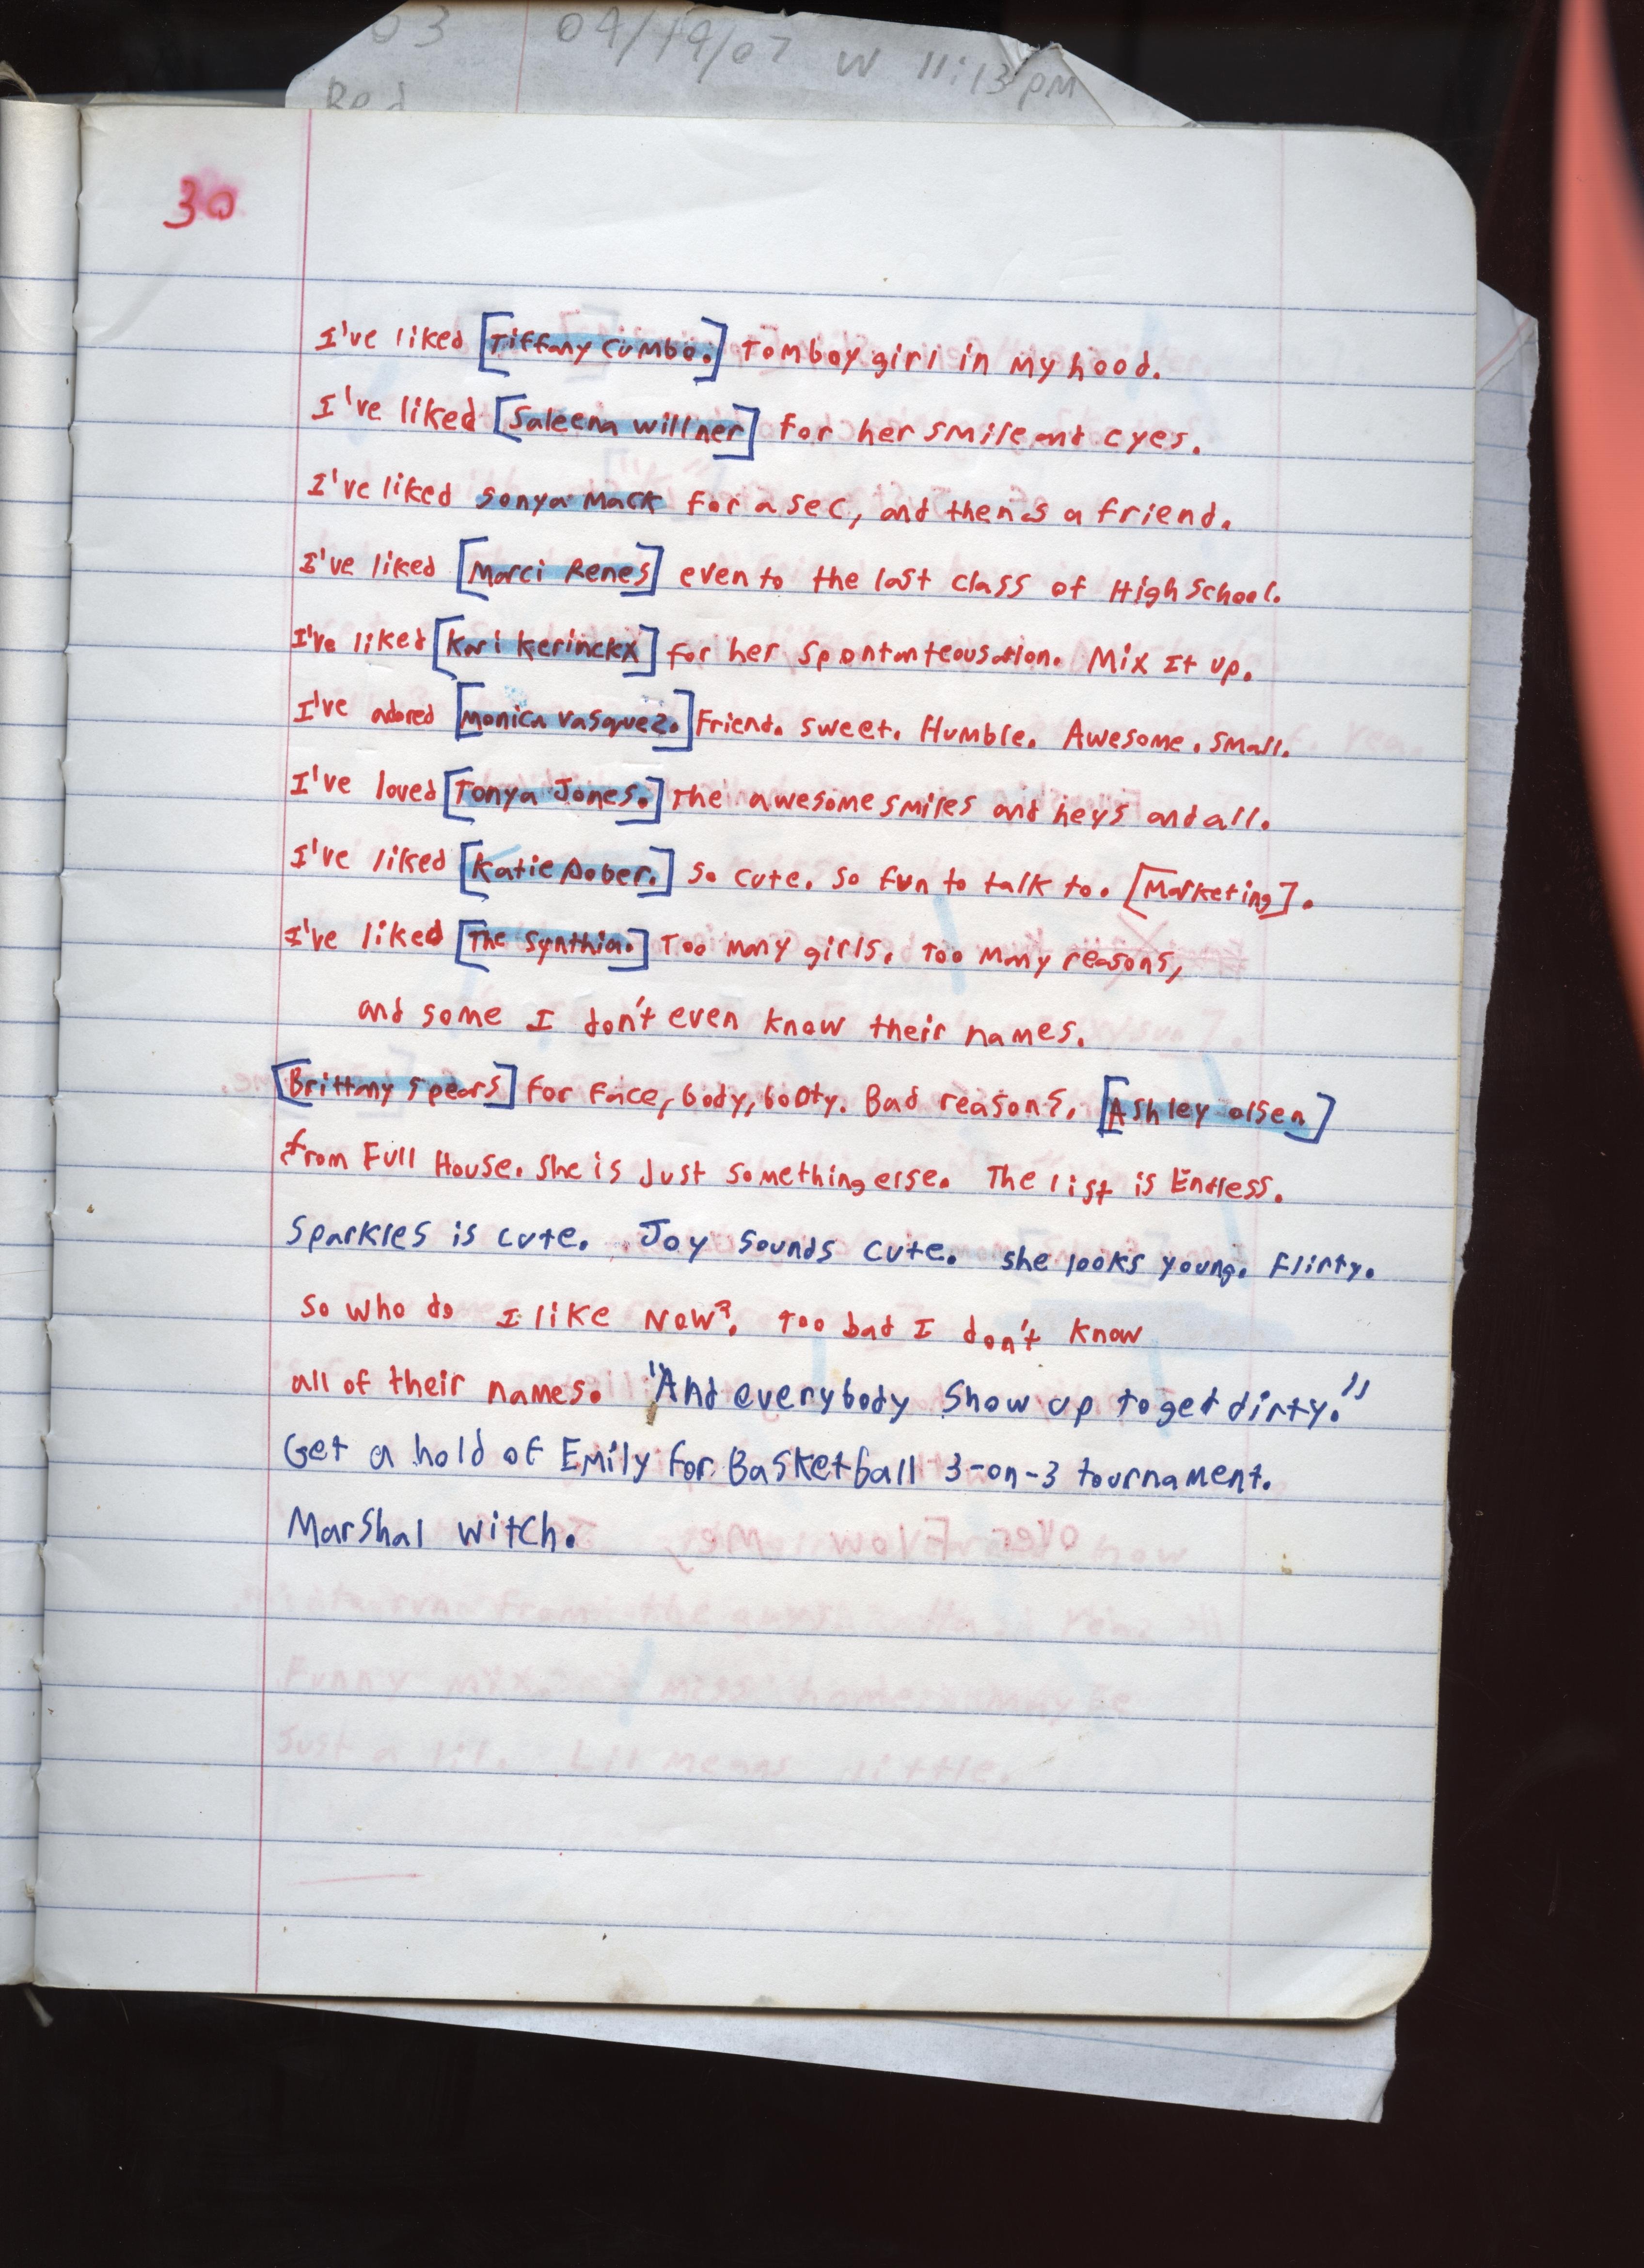 03 04/19/07 W 11:13 PM
Red
30
I've liked [Tiffany Cumbo.] Tomboy girl in my hood.
I've liked [Saleena Willner] for her smile and eyes.
I've liked Sonya Mack for a sec, and then as a friend.
I've liked [Marci Renes] even to the last class of High School.
I've liked [Kari Kerinckx] for her spontanteousation. Mix It up.
I've adored [Monica Vasquez.] Friend. Sweet. Humble. Awesome. Small.
I've loved [Tonya Jones.] The awesome smiles and heys and all.
I've liked [Katie Dober.] So cute. So fun to talk to. [Marketing].
I've liked [The Synthia.] Too many girls. Too many reasons,
and some I don't even know their names.
[Brittany Spears] for face, body, booty. Bad reasons. [Ashley Olsen]
from Full House. She is just something else. The list is Endless.
Sparkles is cute. Joy sounds cute. She looks young. Flirty.
So who do I like Now?. Too bad I don't know
all of their names. "And everybody show up to get dirty."
Get a hold of Emily for Basketball 3-on-3 tournament.
Marshal Witch.
Funny mix. miss home
Just a lil. Lil means little.